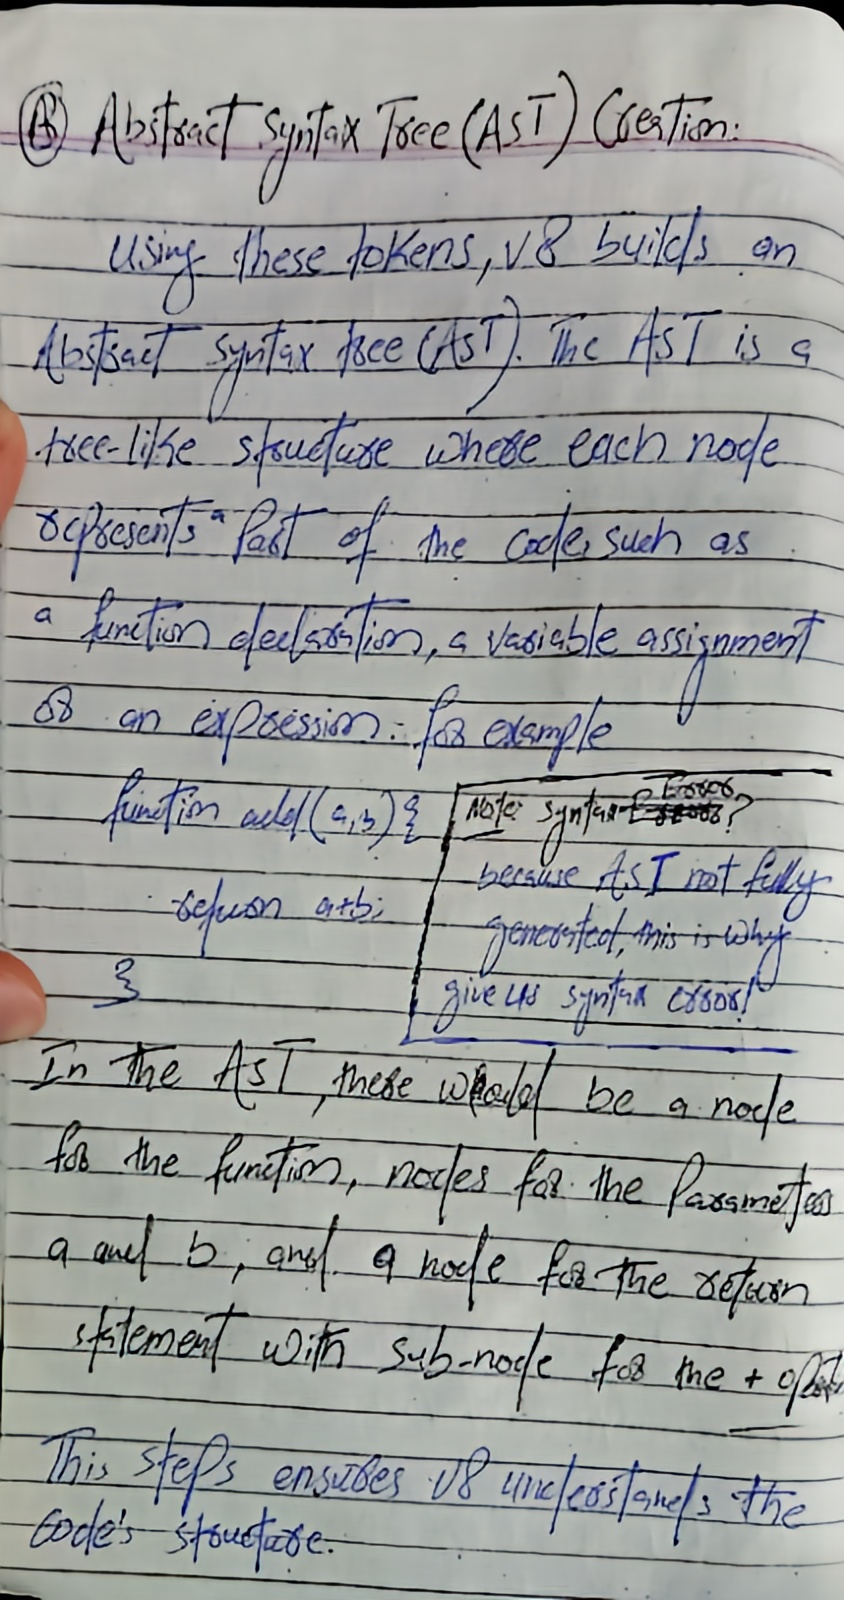 (B) Abstract Syntax Tree (AST) Creation:
Using these tokens, V8 builds an
Abstract syntax tree (AST). The AST is a
tree-like structure where each node
represents a Part of the code, such as
a function declaration, a variable assignment
or an expression. for example
function add(a,b){
return a+b;
}
Note: syntax Error?
because AST not fully
generated, this is why
give us syntax error!
In the AST, there would be a node
for the function, nodes for the Parameters
a and b, and a node for the return
statement with sub-node for the +
This steps ensures V8 understands the
code's structure.